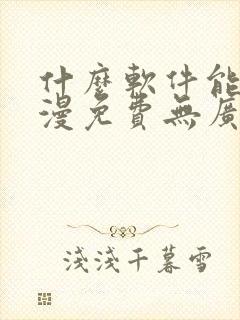 什麼軟件能
漫免費無廣
淺淺千暮雪